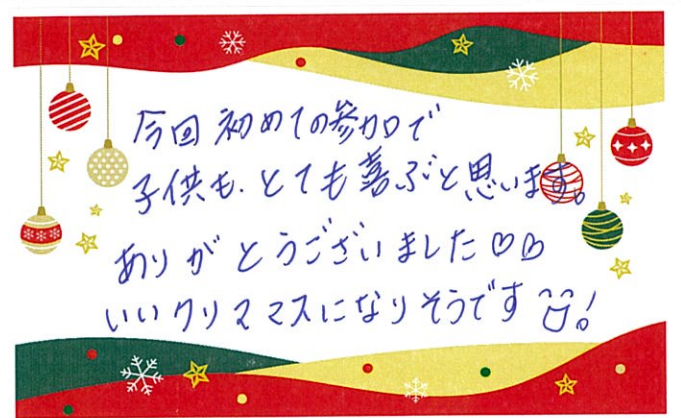 今回初めての参加で
子供も、とても喜ぶと思います。
ありがとうございました♡♡
いいクリスマスになりそうです^^!